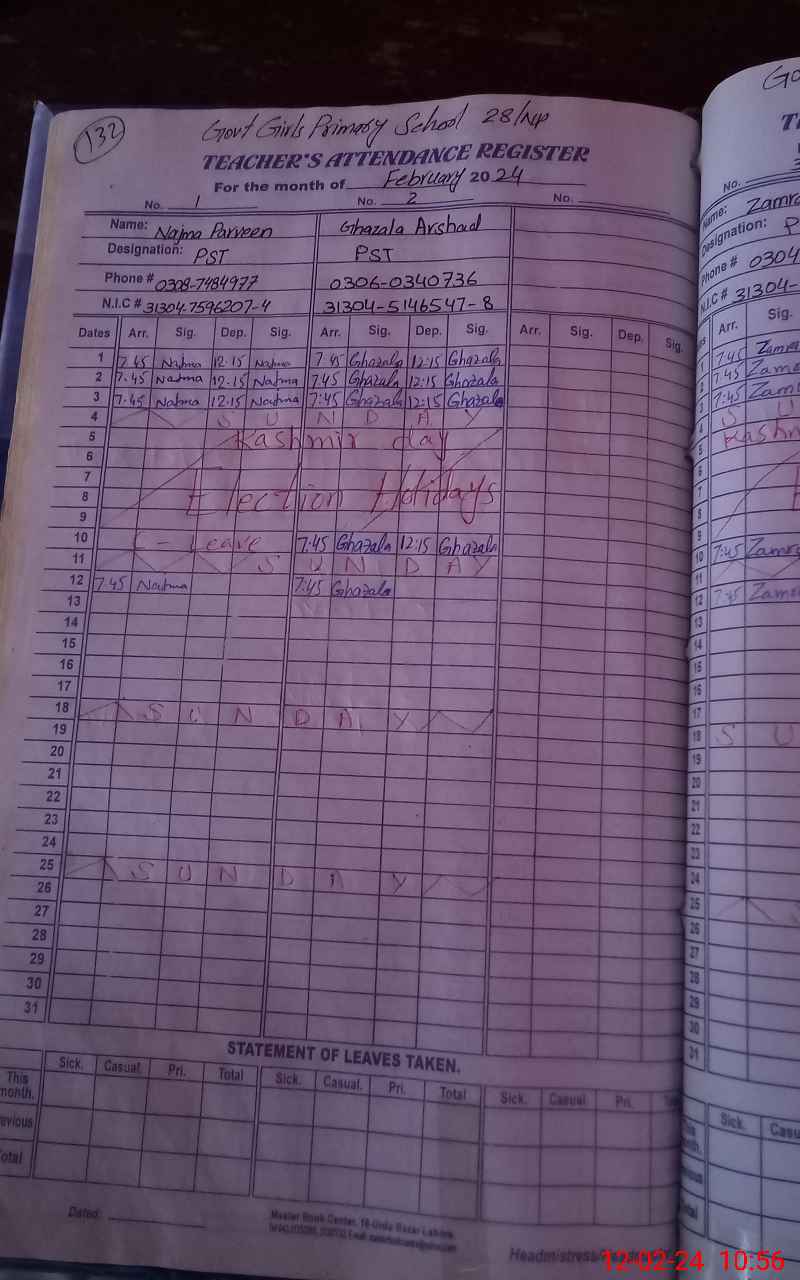 132
Govt Girls Primary School 28/NP
TEACHER'S ATTENDANCE REGISTER
For the month of February 2024
No. 1 No. 2 No.
Name: Najma Parveen Ghazala Arshad
Designation: PST PST
Phone # 0308-7484977 0306-0340736
N.I.C # 31304-7596207-4 31304-5146547-8
Dates Arr. Sig. Dep. Sig. Arr. Sig. Dep. Sig. Arr. Sig. Dep. Sig.
1 7.45 Najma 12.15 Najma 7:45 Ghazala 12:15 Ghazala
2 7.45 Najma 12.15 Najma 7:45 Ghazala 12:15 Ghazala
3 7.45 Najma 12.15 Najma 7:45 Ghazala 12:15 Ghazala
4 S U N D A Y
5 Kashmir day
6
7
8 Election Holidays
9
10 C - Leave 7:45 Ghazala 12:15 Ghazala
11 S U N D A Y
12 7.45 Najma 7:45 Ghazala
13
14
15
16
17
18 S U N D A Y
19
20
21
22
23
24
25 S U N D A Y
26
27
28
29
30
31
STATEMENT OF LEAVES TAKEN.
Sick. Casual. Pri. Total Sick. Casual. Pri. Total Sick. Casual Pri.
This month.
Total
Dated:
Master Book Center, 16-Urdu Bazar Lahore
No.
Name: Zamra
Designation: P
Phone # 0304
N.I.C # 31304-
Arr. Sig.
1 7:45 Zamra
2 7:45 Zamra
3 7:45 Zam
4 S U
5 Kashm
6
7
8
9
10 7:45 Zamra
11
12 7:45 Zamra
13
14
15
16
17
18 S U
19
20
21
22
23
24
25 S
26
27
28
29
30
31
Sick. Casu
12-02-24 10:56